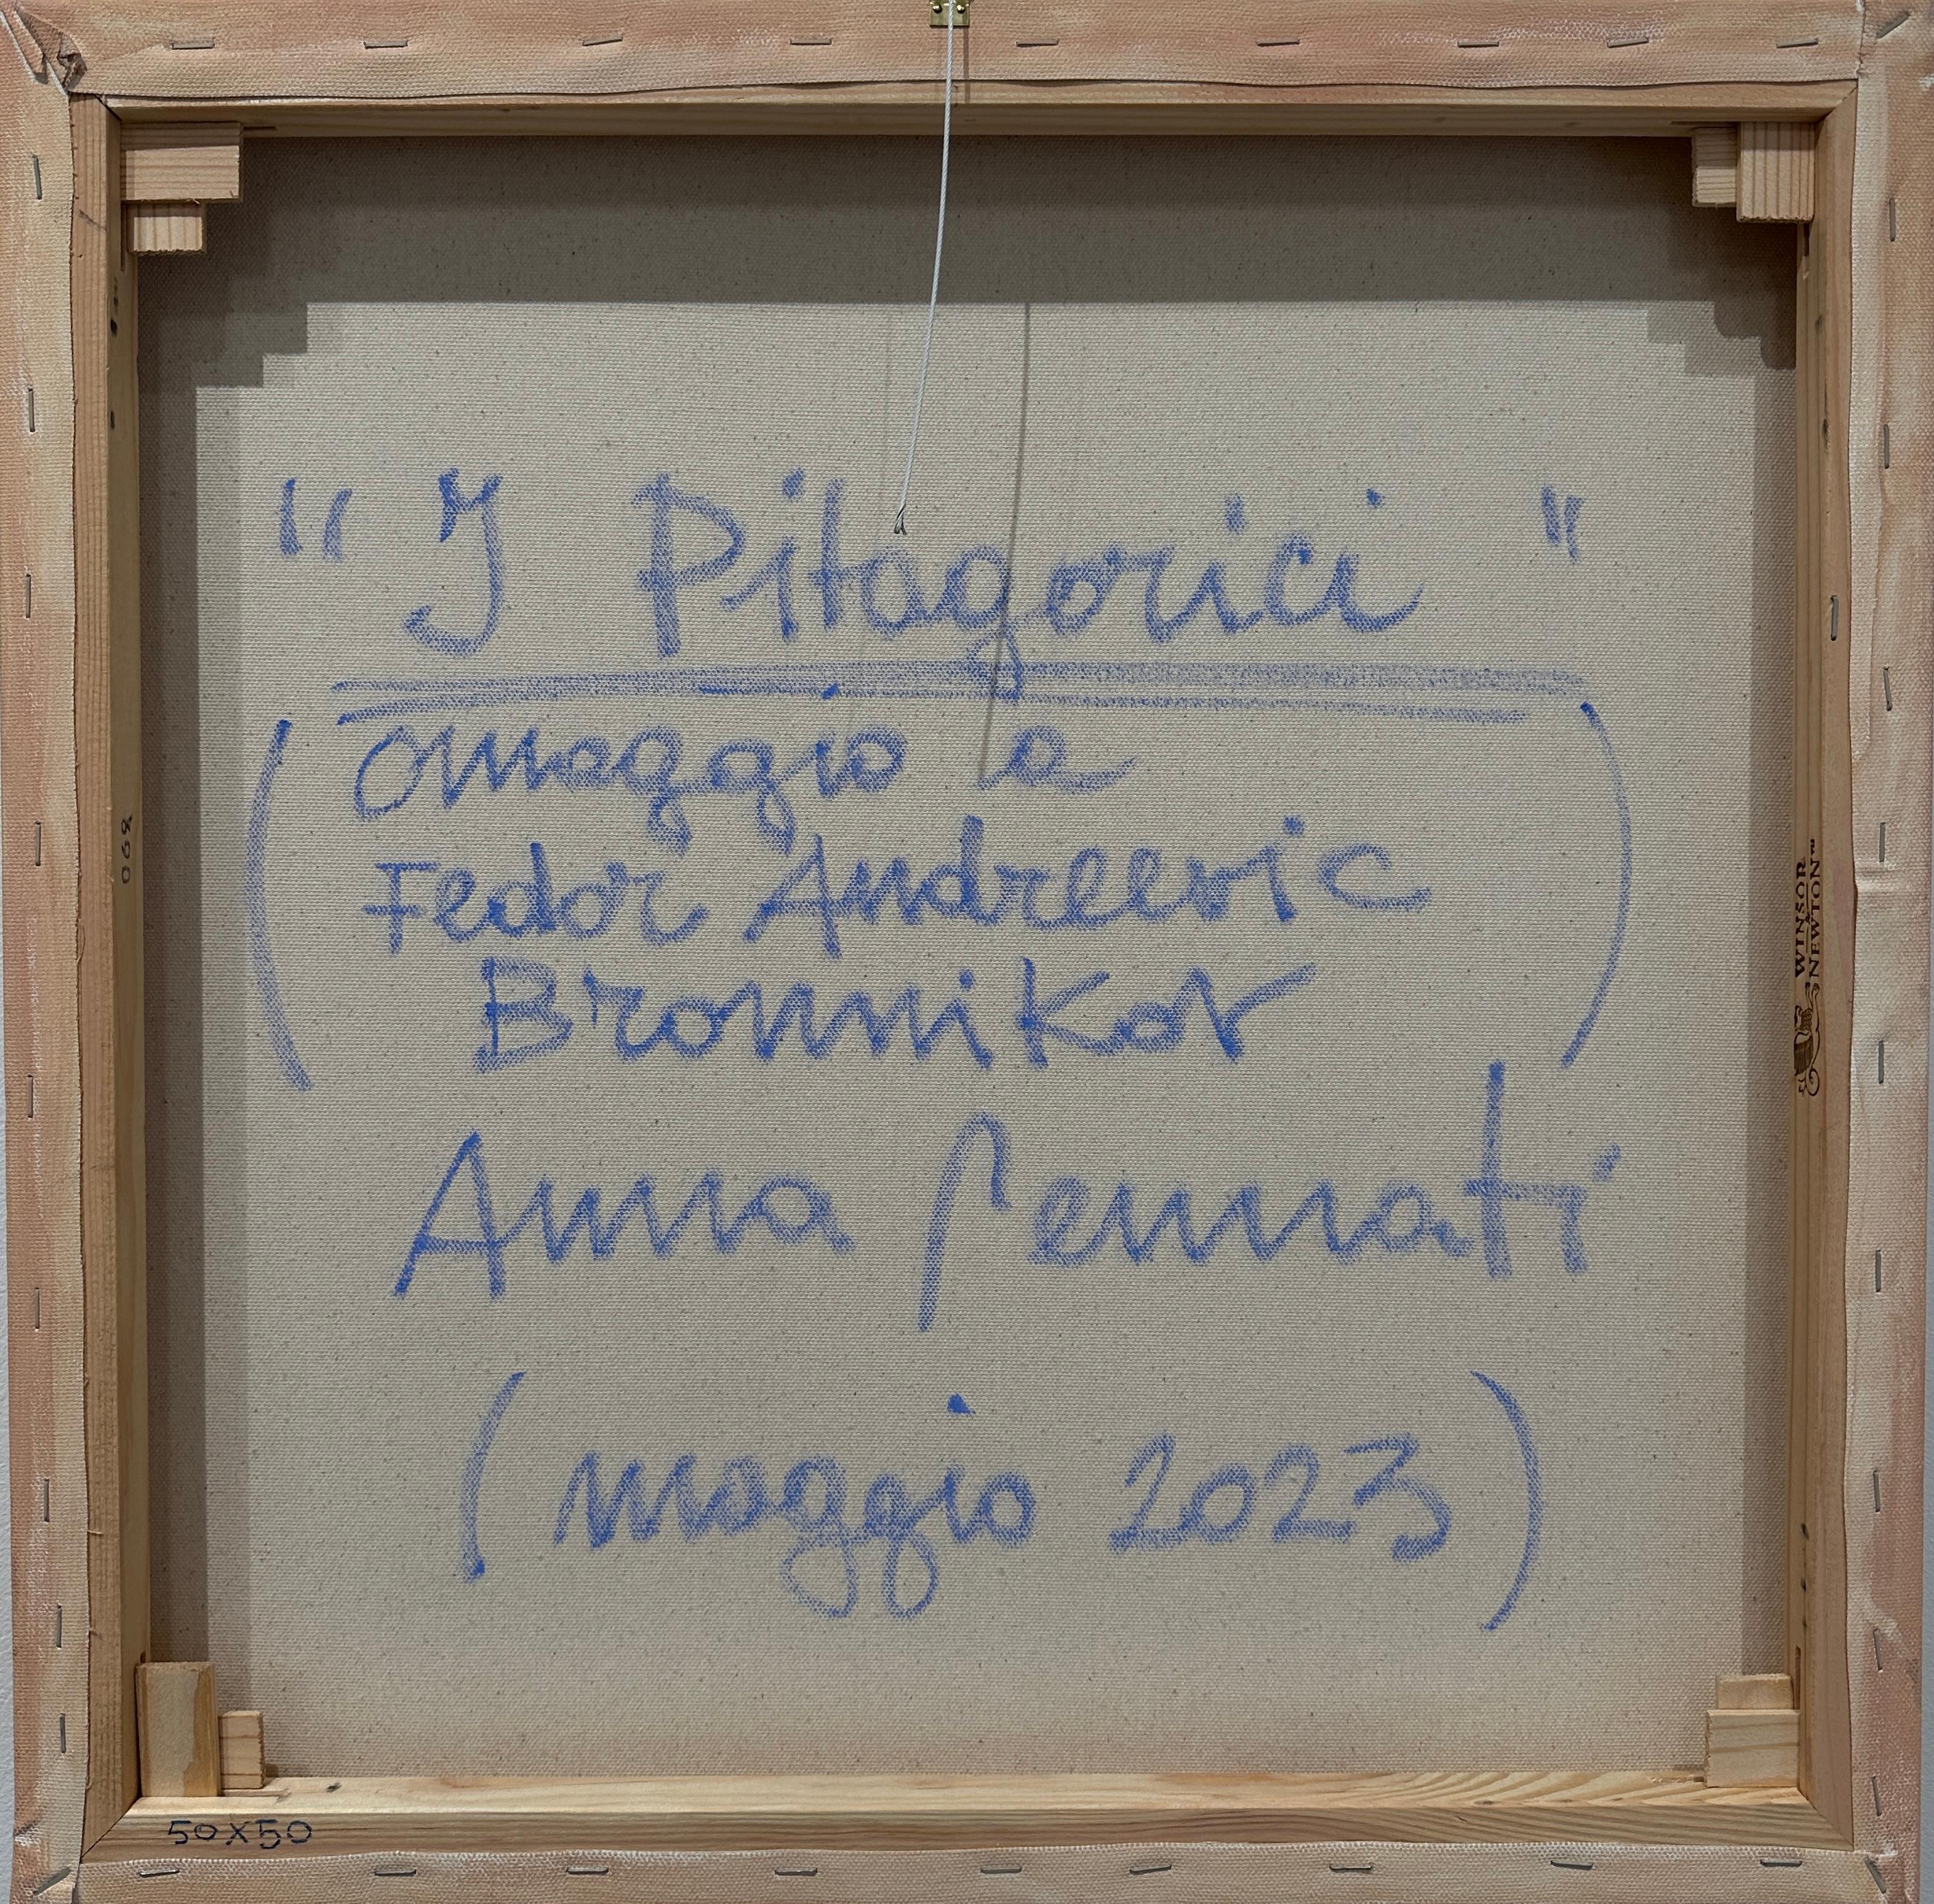 "I Pitagorici"
(omaggio a
Fedor Andreevic
Bronnikov)
Anna Pennati
(maggio 2023)
50X50
890
WINSOR
NEWTON™